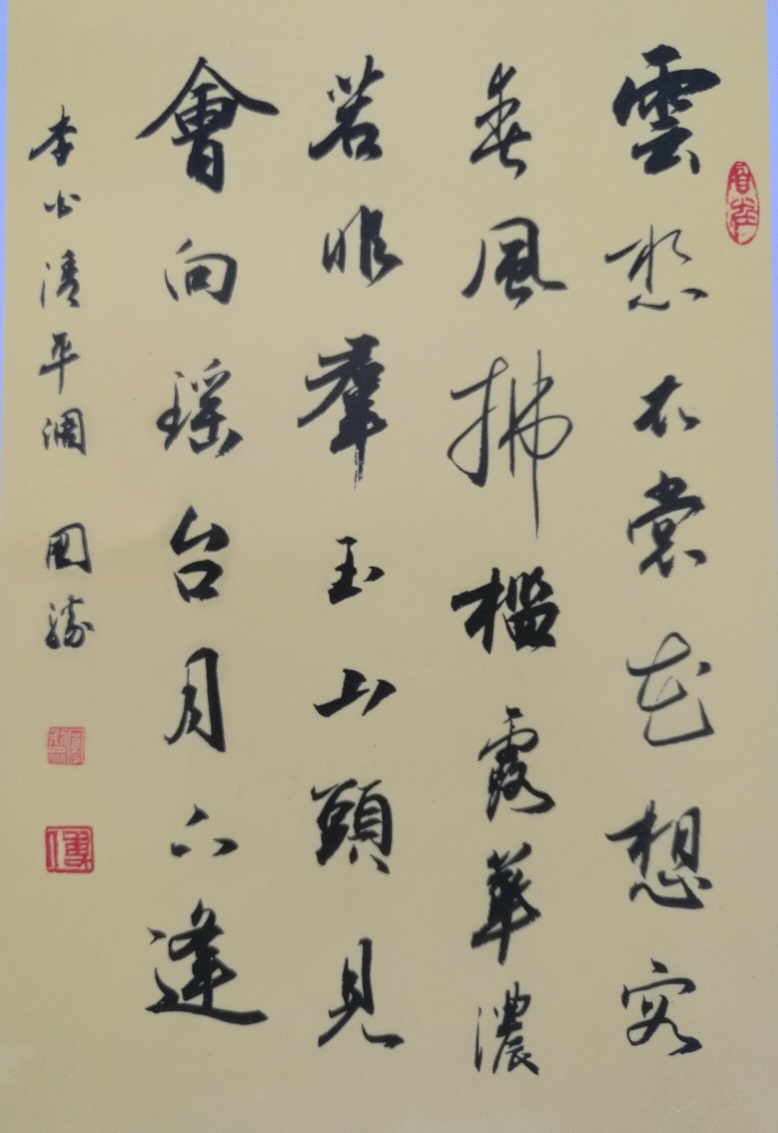 雲想衣裳花想容
春風拂檻露華濃
若非羣玉山頭見
會向瑶台月下逢
李白清平調 國勝